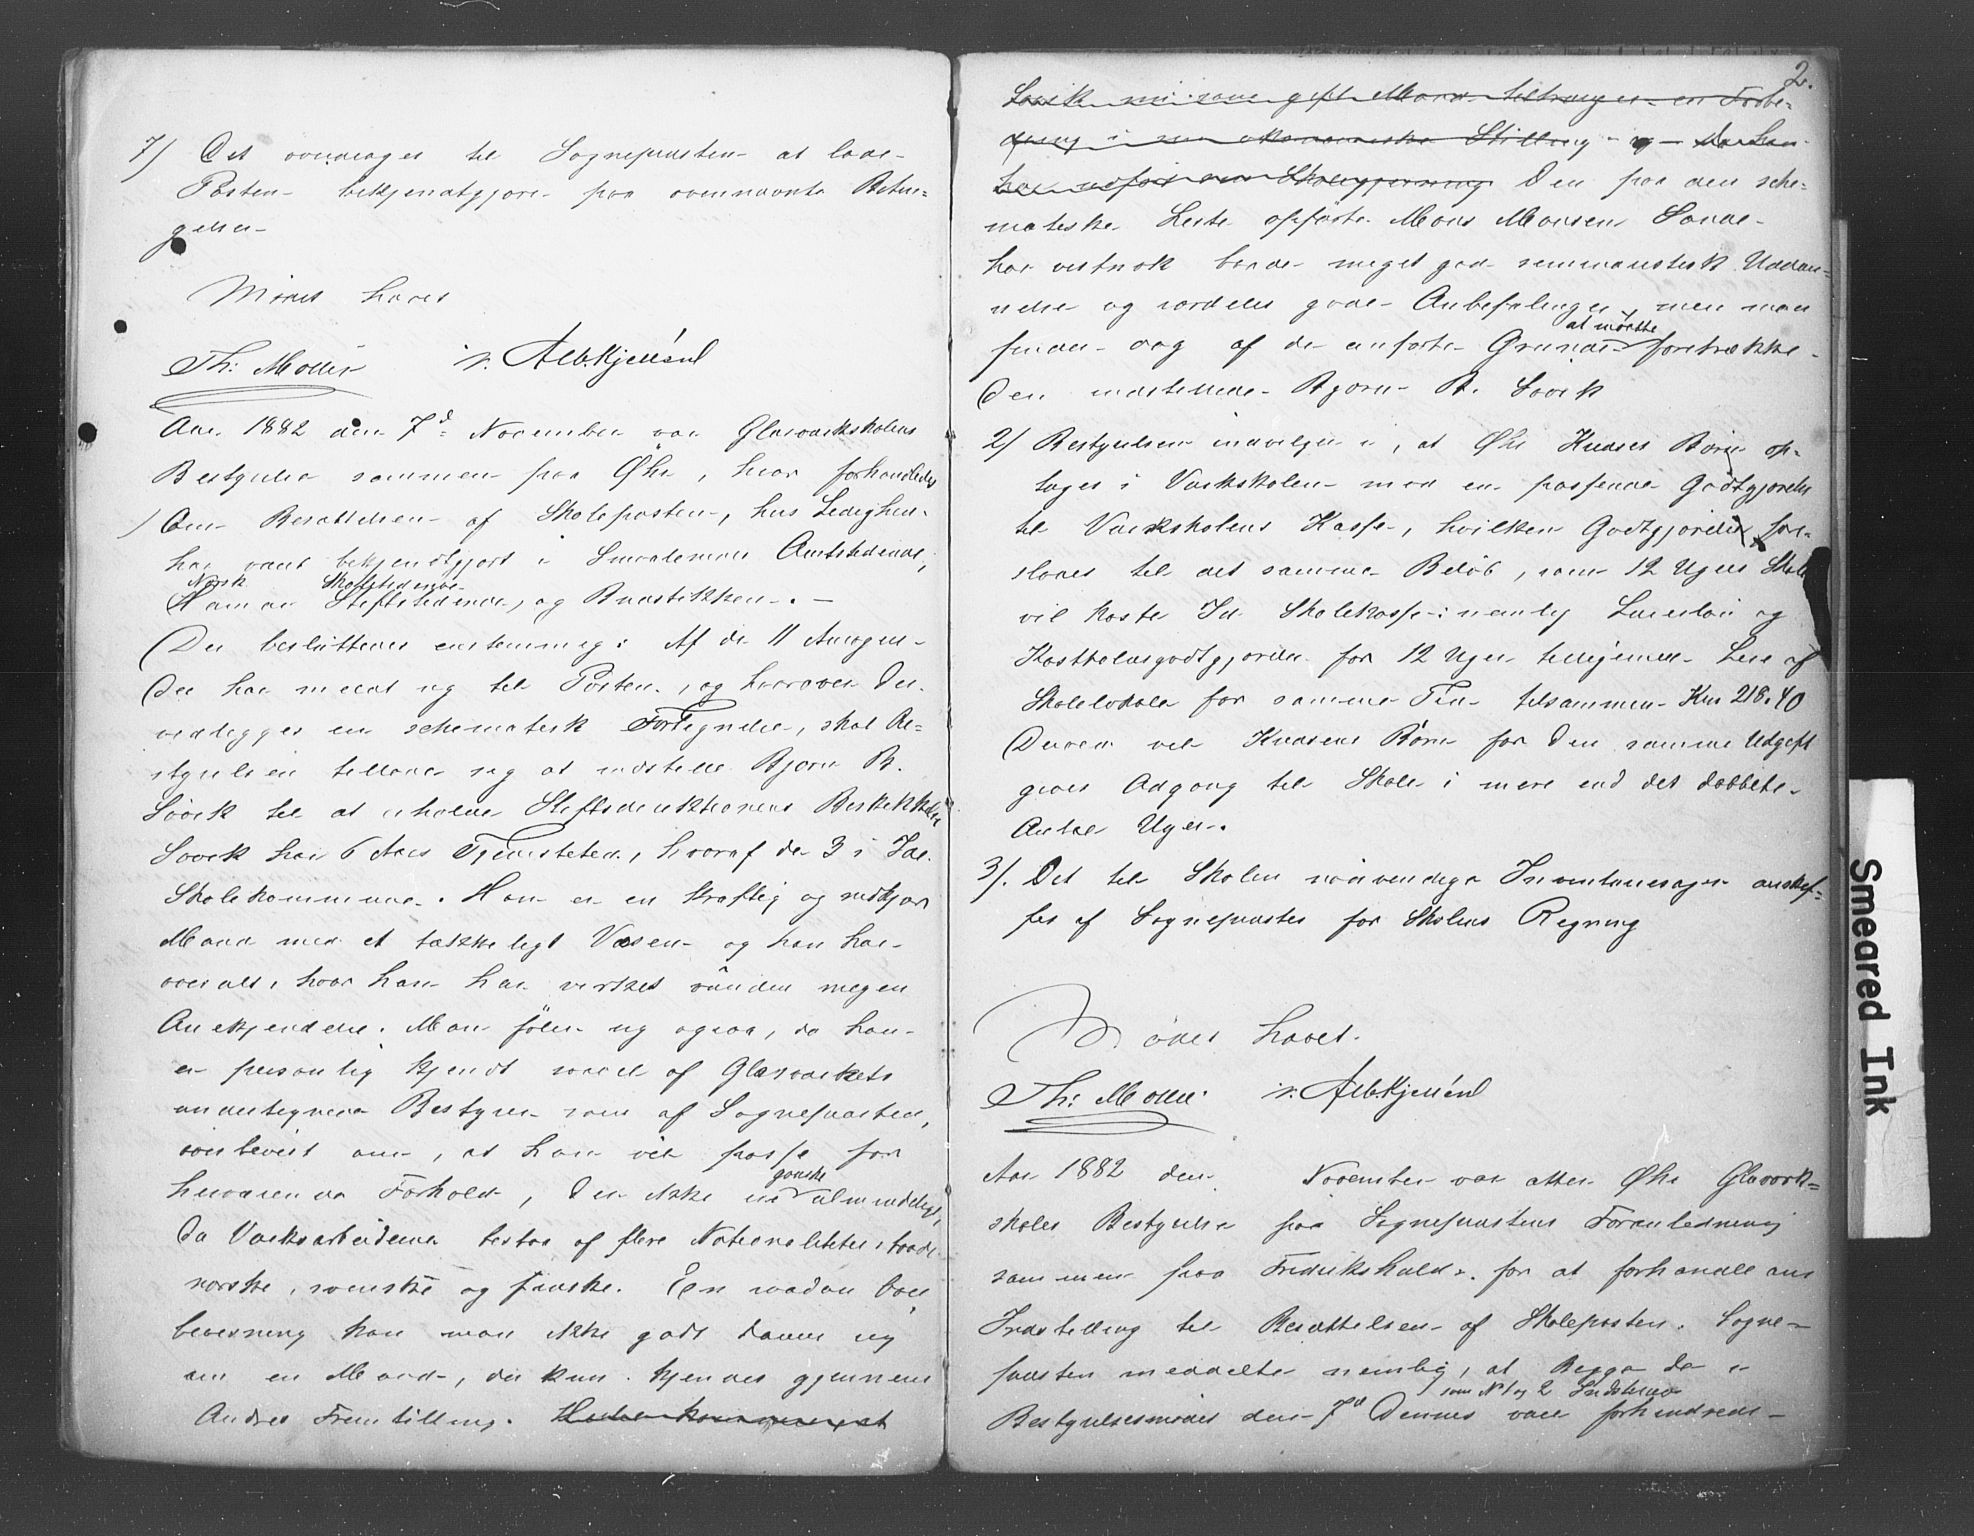 7/ Det overdrages til Sognepræsten at lade
Posten bekjendtgjøre paa ovennævnte Betin-
gelser
Mødet hævet
Th: Møller
Aar 1882 den 7d November var Glasværkskolens
Bestyrelse sammen paa Øhs, hvor forhandledes
1/ Om Besættelsen af Skoleposten, hvis Ledighed
har været bekjendtgjort i Smaalenenes Amtstidende,
Norsk Skoletidende
Hamar Stiftstidende, og Budstikken. —
Der besluttedes enstemmig: Af de 11 Ansøgere
der har meldt sig til Posten, og hvorover der
vedlægges en schematisk Fortegnelse, skal Be-
styrelsen tillade sig at indstille Bjørn B.
Søvik til at erholde Stiftsdirektionens Beskikkelse
Søvik har 6 Aars Tjenestetid, hvoraf de 3 i Id
Skolekommune. Han er en kraftig og rødkjær
Mand med et tækkeligt Væsen og han har
overalt, hvor han har virket vundet megen
Anerkjendelse. Man føler sig ogsaa, da han
er personlig kjendt saavel af Glasværkets
undertegnede Bestyrer som af Sognepræsten,
overbevist om, at han vil passe for
ganske
herværende Forhold, der ikke er almindelige,
da Værksarbeiderne bestaa af flere Nationaliteter, baade
norske, svenske og finske. En saadan Over
bevisning kan man ikke godt danne sig
om en Mand, der kun kjendes gjennem
Andres Fremstilling.
2.
Søvik som gift Mand tiltrænger en Forbe-
dring i sin økonomiske Stilling og
Skolegjerning Den paa den sche-
matiske Liste opførte Mons Monsen Sande
har vistnok baade meget god seminaristisk Uddan-
nelse og særdeles gode Anbefalinger, men man
at maatte
finder dog af de anførte Grunde foretrække
den indstillede Bjørn B. Søvik
2/ Bestyrelsen indvilger i, at Øhs Kvases Børn op-
tages i Værkskolen mod en passende Godtgjørelse
til Værkskolens Kasse, hvilken Godtgjørelse fore-
slaaes til det samme Beløb, som 12 Ugers Skole
vil koste Id Skolekasse: nemlig Lærerløn og
Kostholdsgodtgjørelse for 12 Uger tilligemed Leie af
Skolelokale for samme Tid tilsammen Kr. 218.40
Derved vil Kvasens Børn for den samme Udgift
gives Adgang til Skole i mere end det dobbelte
Antal Uger.
3/. Det til Skolen nødvendige Inventariesager anskaf-
fes af Sognepræsten for Skolens Regning
Mødet hævet.
Th: Møller
Aar 1882 den November var atter Øhs Glasværk-
skoles Bestyrelse paa Sognepræstens Foranledning
sammen paa Fredrikshald for at forhandle om
Indstilling til Besættelsen af Skoleposten. Sogne-
præsten meddelte nemlig, at Begge de i
som No 1 og 2 Indstillede
Bestyrelsesmødet den 7d Dennes vare forhindrede
Smeared Ink